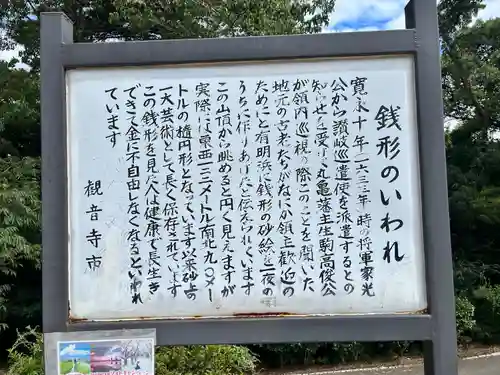 銭形のいわれ
寛永十年(一六三三年)時の将軍家光
公から讃岐巡遣使を派遣するとの
知らせを受けた丸亀藩主生駒高俊公
が領内巡視の際このことを聞いた
地元の古老たちがなにか領主歓迎の
ためにと有明浜に銭形の砂絵を一夜の
うちに作りあげたと伝えられています
この山頂から眺めると円く見えますが
実際には東西一二二メートル南北九〇メー
トルの楕円形となっています巨大な砂上の
一大芸術として長く保存されています
この銭形を見た人は健康で長生き
できて金に不自由しなくなるといわれ
ています
観音寺市